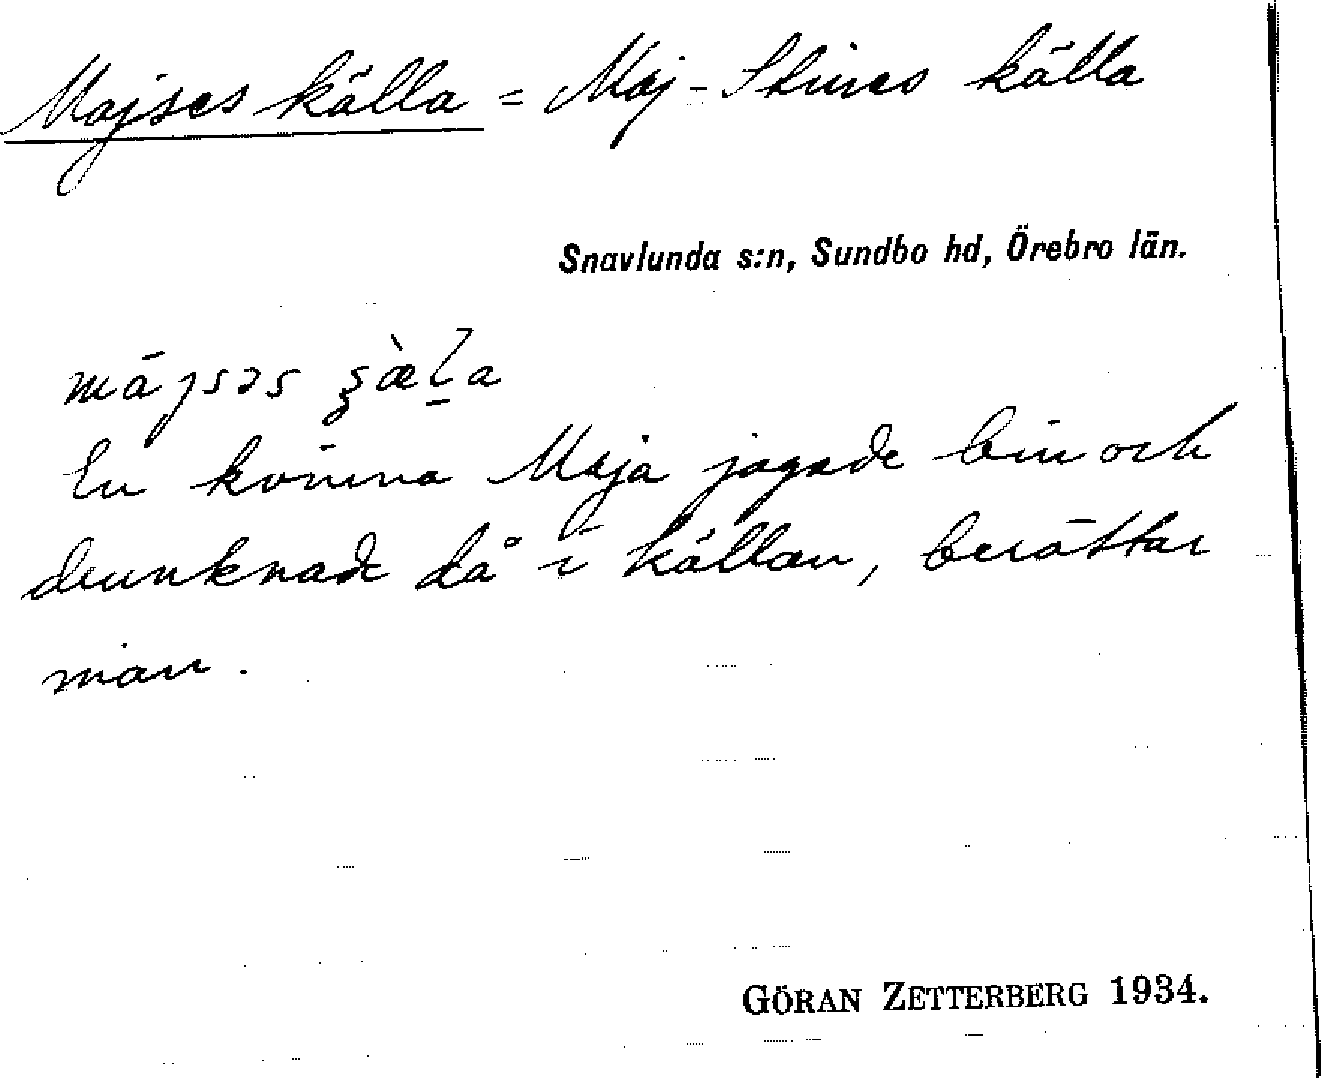 Majses källa = Maj-Stines källa
Snavlunda s:n, Sundbo hd, Örebro län.
mājsəs
En kvinna Maja jagade bin och
drunknade då i källan, berättar
man.
GÖRAN ZETTERBERG 1934.